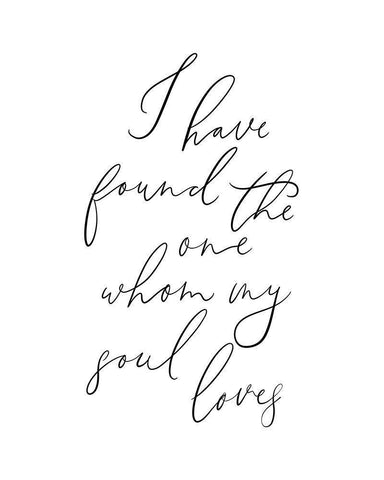 I have
found the
one
whom my
soul
loves